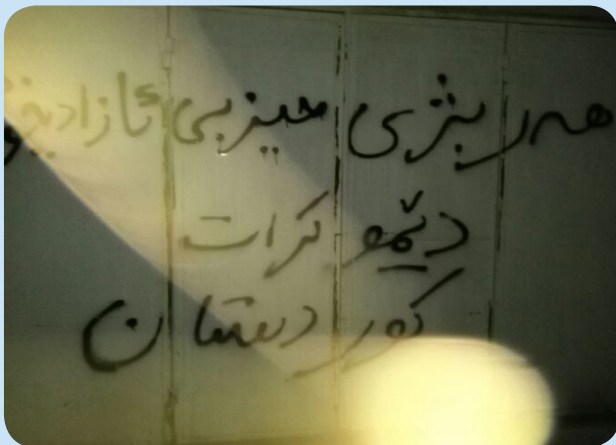 هەر بژی حیزبی ئازادیخو
دێموکرات
کوردستان